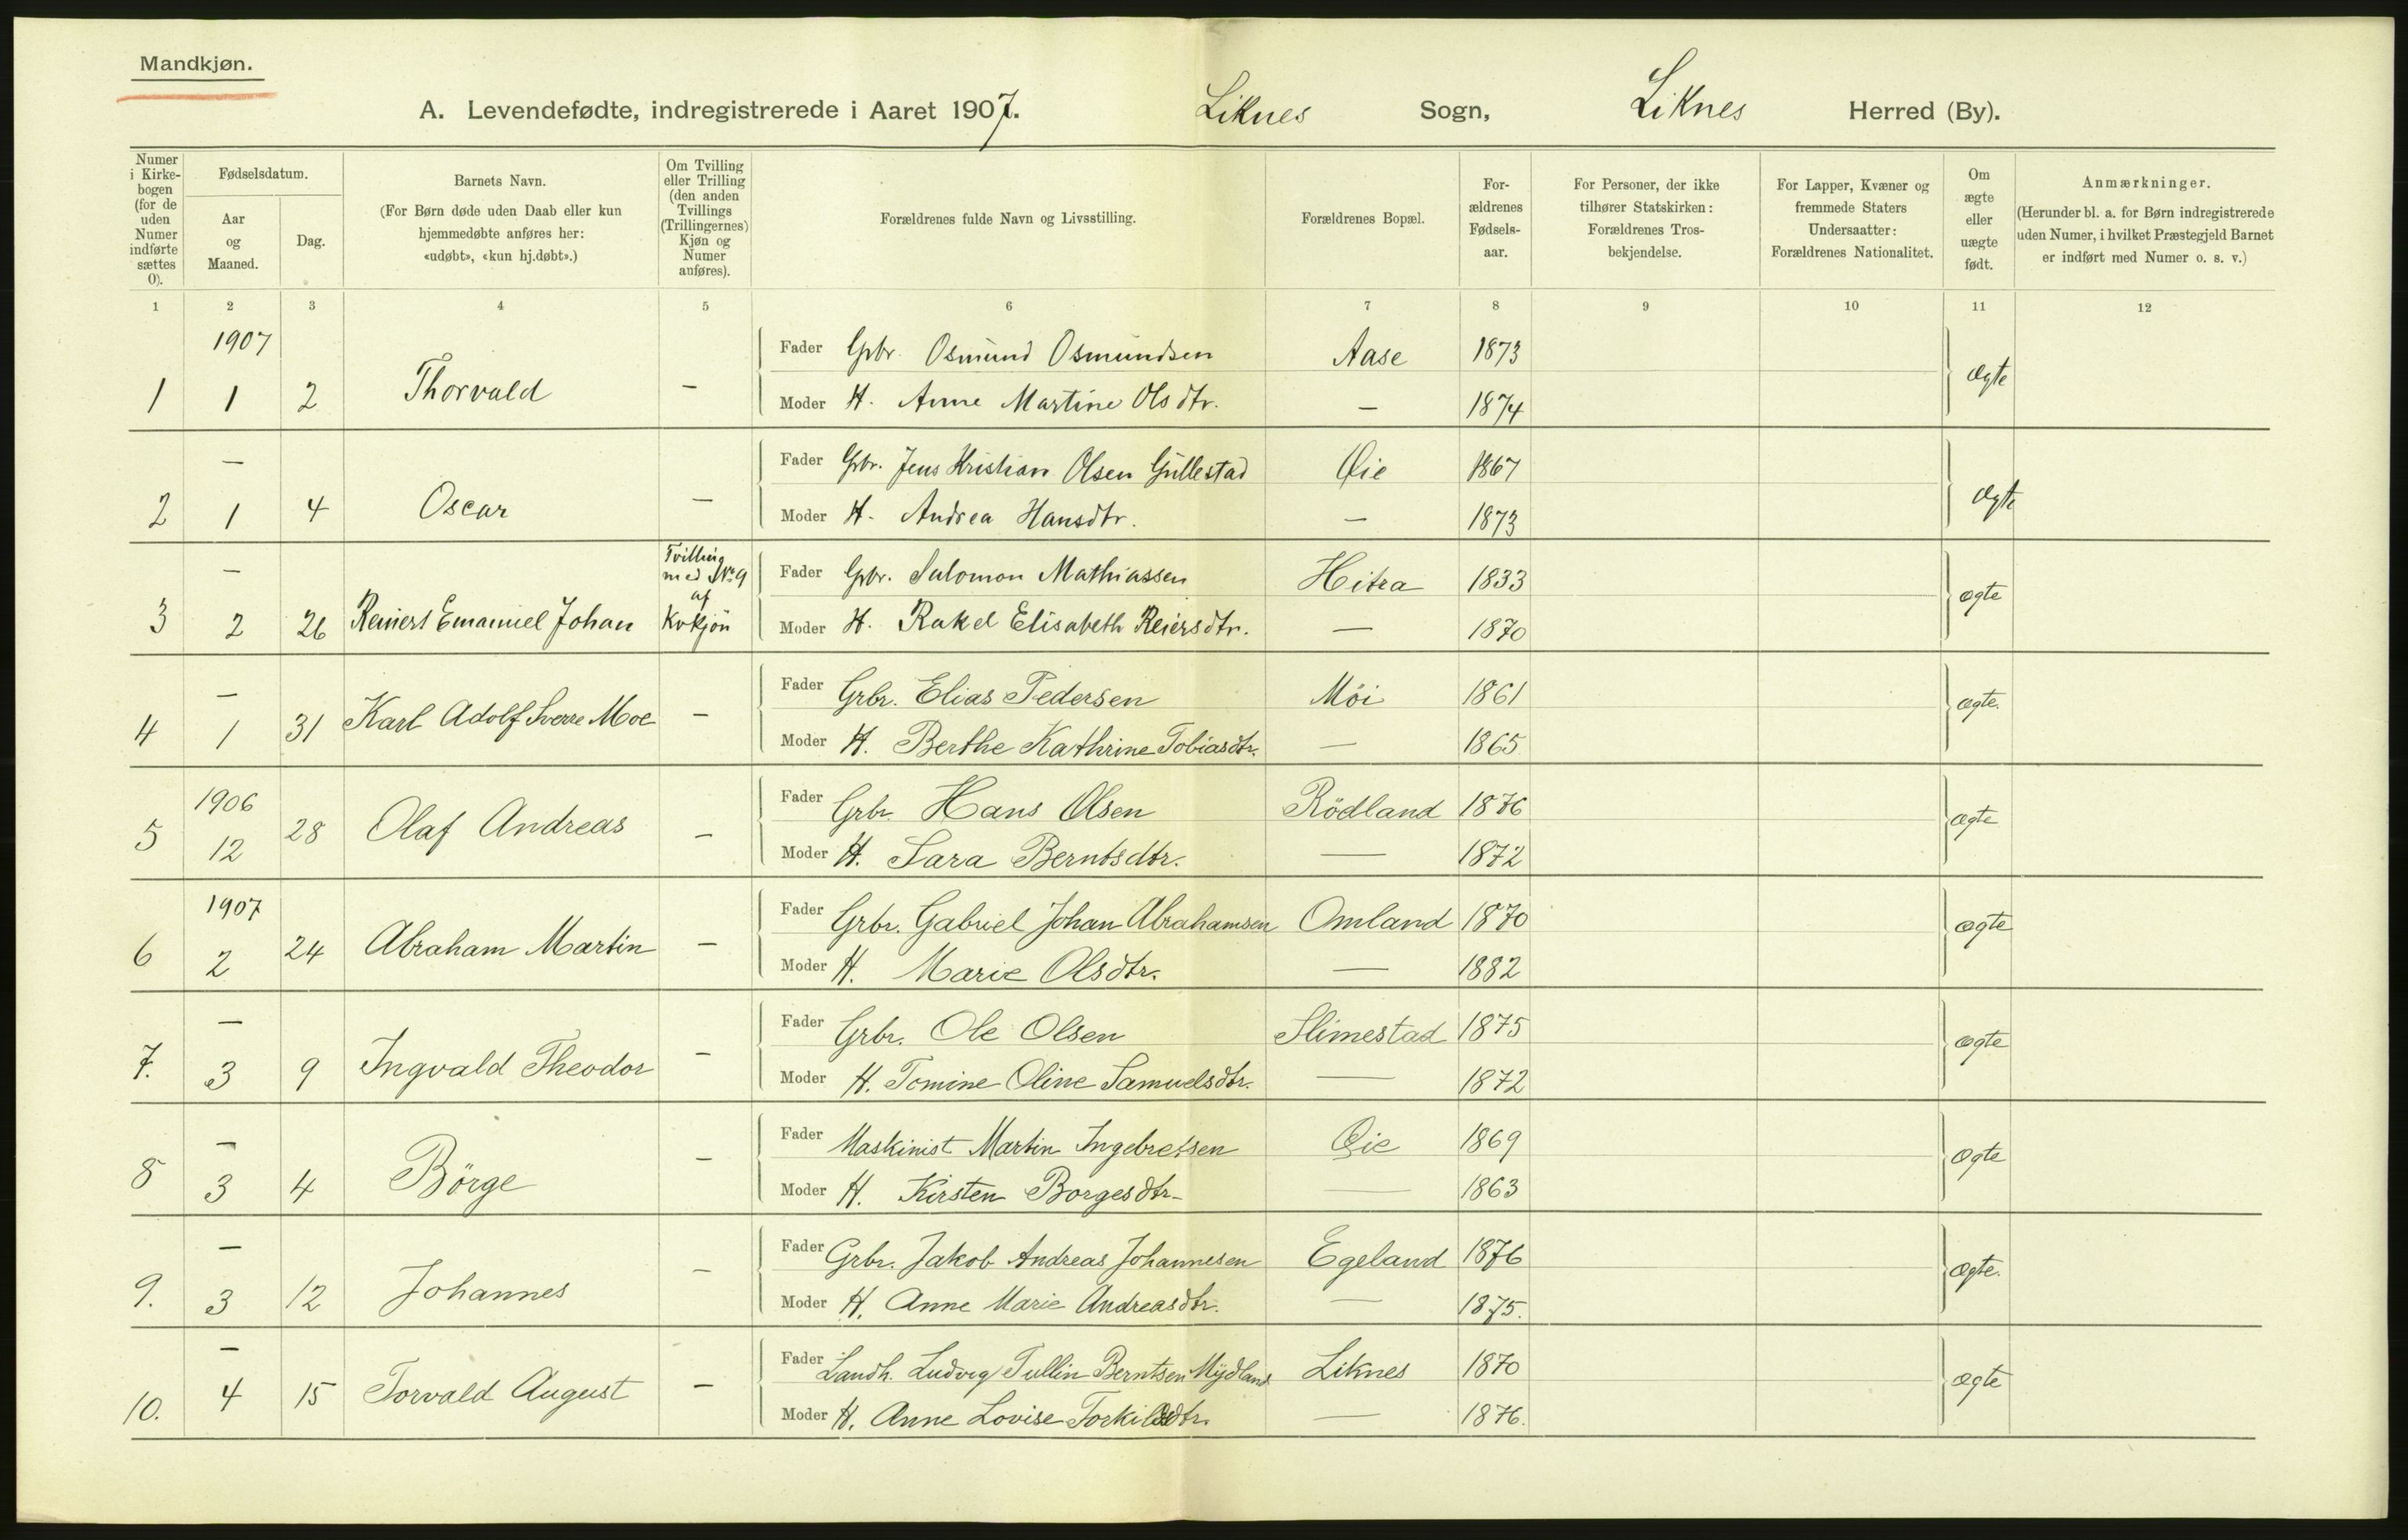 Mandkjøn.
A. Levendefødte, indregistrerede i Aaret 1907. Liknes Sogn, Liknes Herred (By).
Numer i Kirke-bogen (for de uden Numer indførte sættes 0).
Fødselsdatum.
Aar og Maaned.
Dag.
Barnets Navn.
(For Børn døde uden Daab eller kun hjemmedøbte anføres her: «udøbt», «kun hj.døbt».)
Om Tvilling eller Trilling (den anden Tvillings (Trillingernes) Kjøn og Numer anføres).
Forældrenes fulde Navn og Livsstilling.
Forældrenes Bopæl.
For-ældrenes Fødsels-aar.
For Personer, der ikke tilhører Statskirken: Forældrenes Tros-bekjendelse.
For Lapper, Kvæner og fremmede Staters Undersaatter: Forældrenes Nationalitet.
Om ægte eller uægte født.
Anmærkninger.
(Herunder bl. a. for Børn indregistrerede uden Numer, i hvilket Præstegjeld Barnet er indført med Numer o. s. v.)
1 2 3 4 5 6 7 8 9 10 11 12
1907
Fader Gbr. Osmund Osmundsen Aase 1873
1 1 2 Thorvald - ægte
Moder H. Anne Martine Olsdtr. — 1874
—
Fader Gbr. Jens Kristian Olsen Gullestad Øie 1867
2 1 4 Oscar — ægte
Moder H. Andrea Hansdtr. — 1873
—
Tvilling med No 9 af Kvkjön
Fader Gbr. Salomon Mathiassen Hitra 1833
3 2 26 Reinert Emanuel Johan ægte
Moder H. Rakel Elisabeth Reiersdtr. — 1870
—
Fader Grbr. Elias Pedersen Möi 1861
4 1 31 Karl Adolf Sverre Moe - ægte.
Moder H. Berthe Kathrine Tobiasdtr. — 1865
1906
Fader Grbr. Hans Olsen Rödland 1876
5 12 28 Olaf Andreas - ægte
Moder H. Sara Berntsdtr. — 1872
1907
Fader Grbr. Gabriel Johan Abrahamsen Omland 1870
6 2 24 Abraham Martin - ægte
Moder H. Marie Olsdtr. — 1882
—
Fader Grbr. Ole Olsen Slimestad 1875
7. 3 9 Ingvald Theodor - ægte
Moder H. Tomine Oline Samuelsdtr. — 1872
—
Fader Maskinist Martin Ingebretsen Øie 1869
8 3 4 Börge - ægte
Moder H. Kirsten Borgesdtr — 1863
—
Fader Grbr. Jakob Andreas Johannesen Egeland 1876
9. 3 12 Johannes - ægte.
Moder H. Anne Marie Andreasdtr. — 1875.
—
Fader Landh. Ludvig Tullin Berntsen Mydland Liknes 1870
10. 4 15 Torvald August - ægte
Moder H. Anne Lovise Torkildsdtr. — 1876.